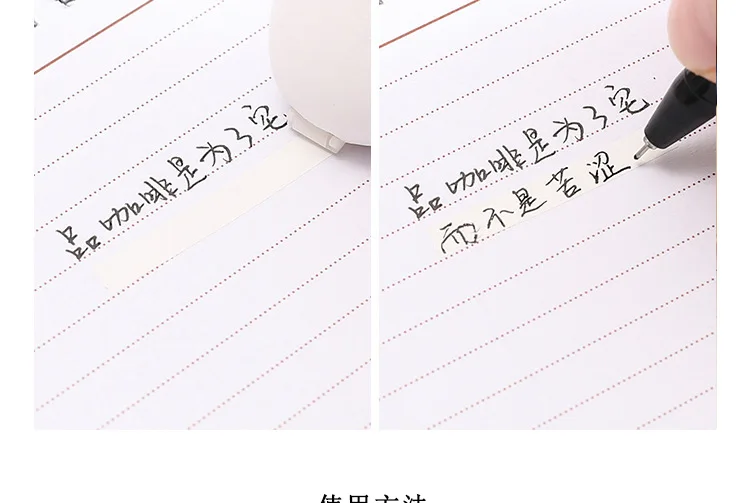 品咖啡是为了宅
品咖啡是为了宅
而不是苦涩
使用方法